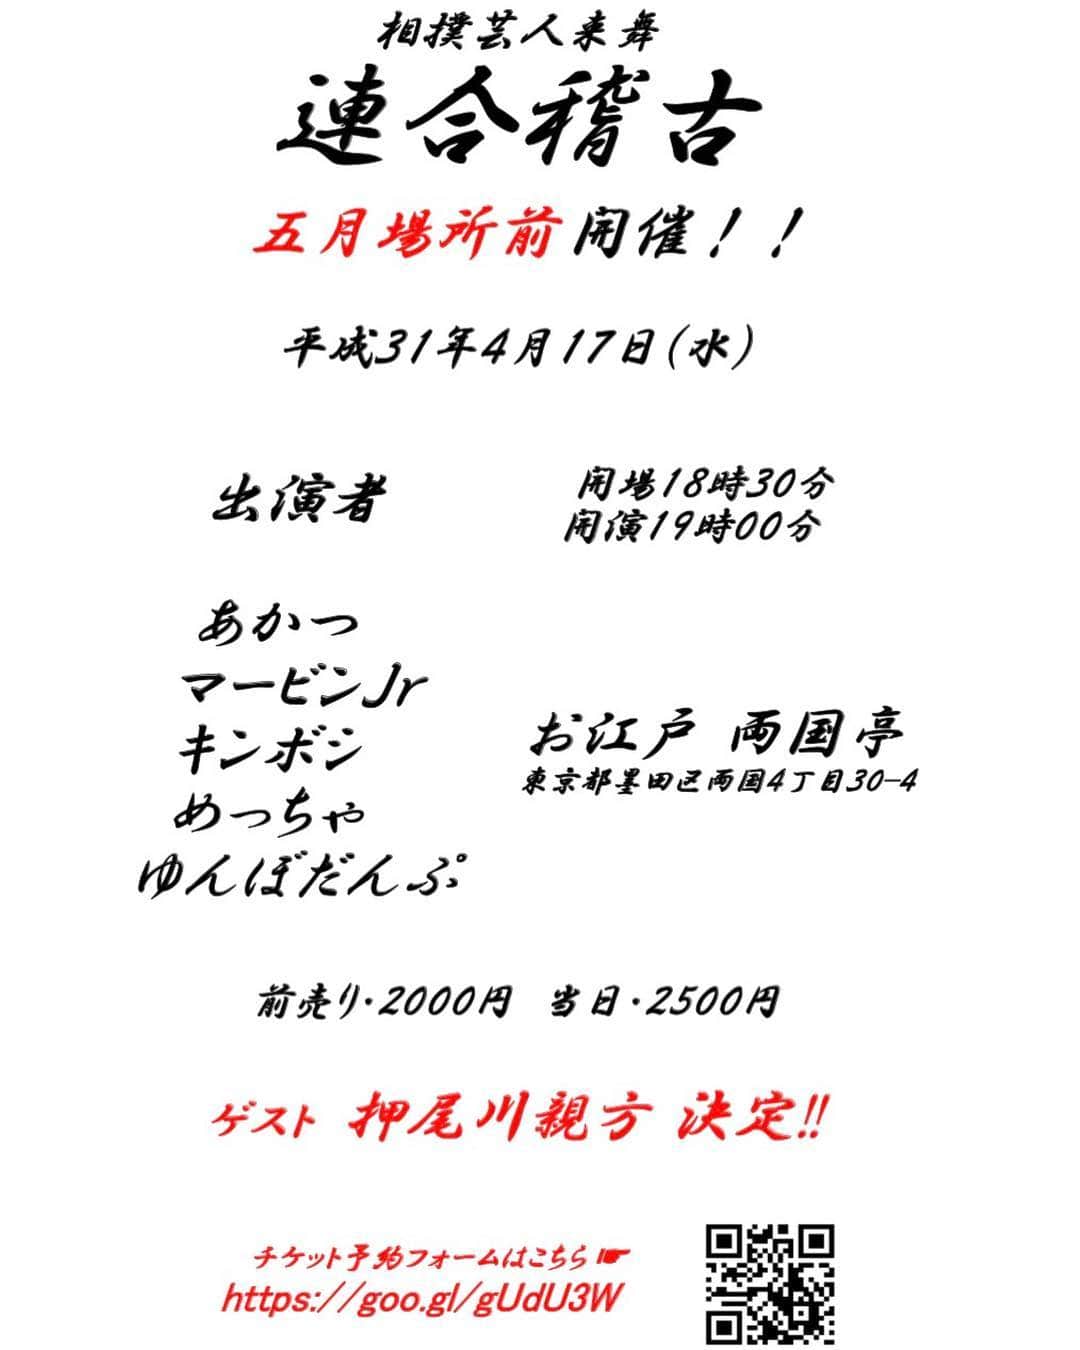 相撲芸人来舞
連合稽古
五月場所前開催！！
平成31年4月17日(水)
出演者
開場18時30分
開演19時00分
あかつ
マービンJr
キンボシ
めっちゃ
ゆんぼだんぷ
お江戸 両国亭
東京都墨田区両国4丁目30-4
前売り・2000円 当日・2500円
ゲスト 押尾川親方 決定!!
チケット予約フォームはこちら☛
https://goo.gl/gUdU3W